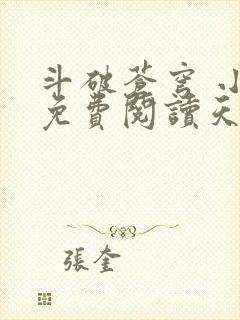 斗破蒼穹 小
免費閱讀天
張奎